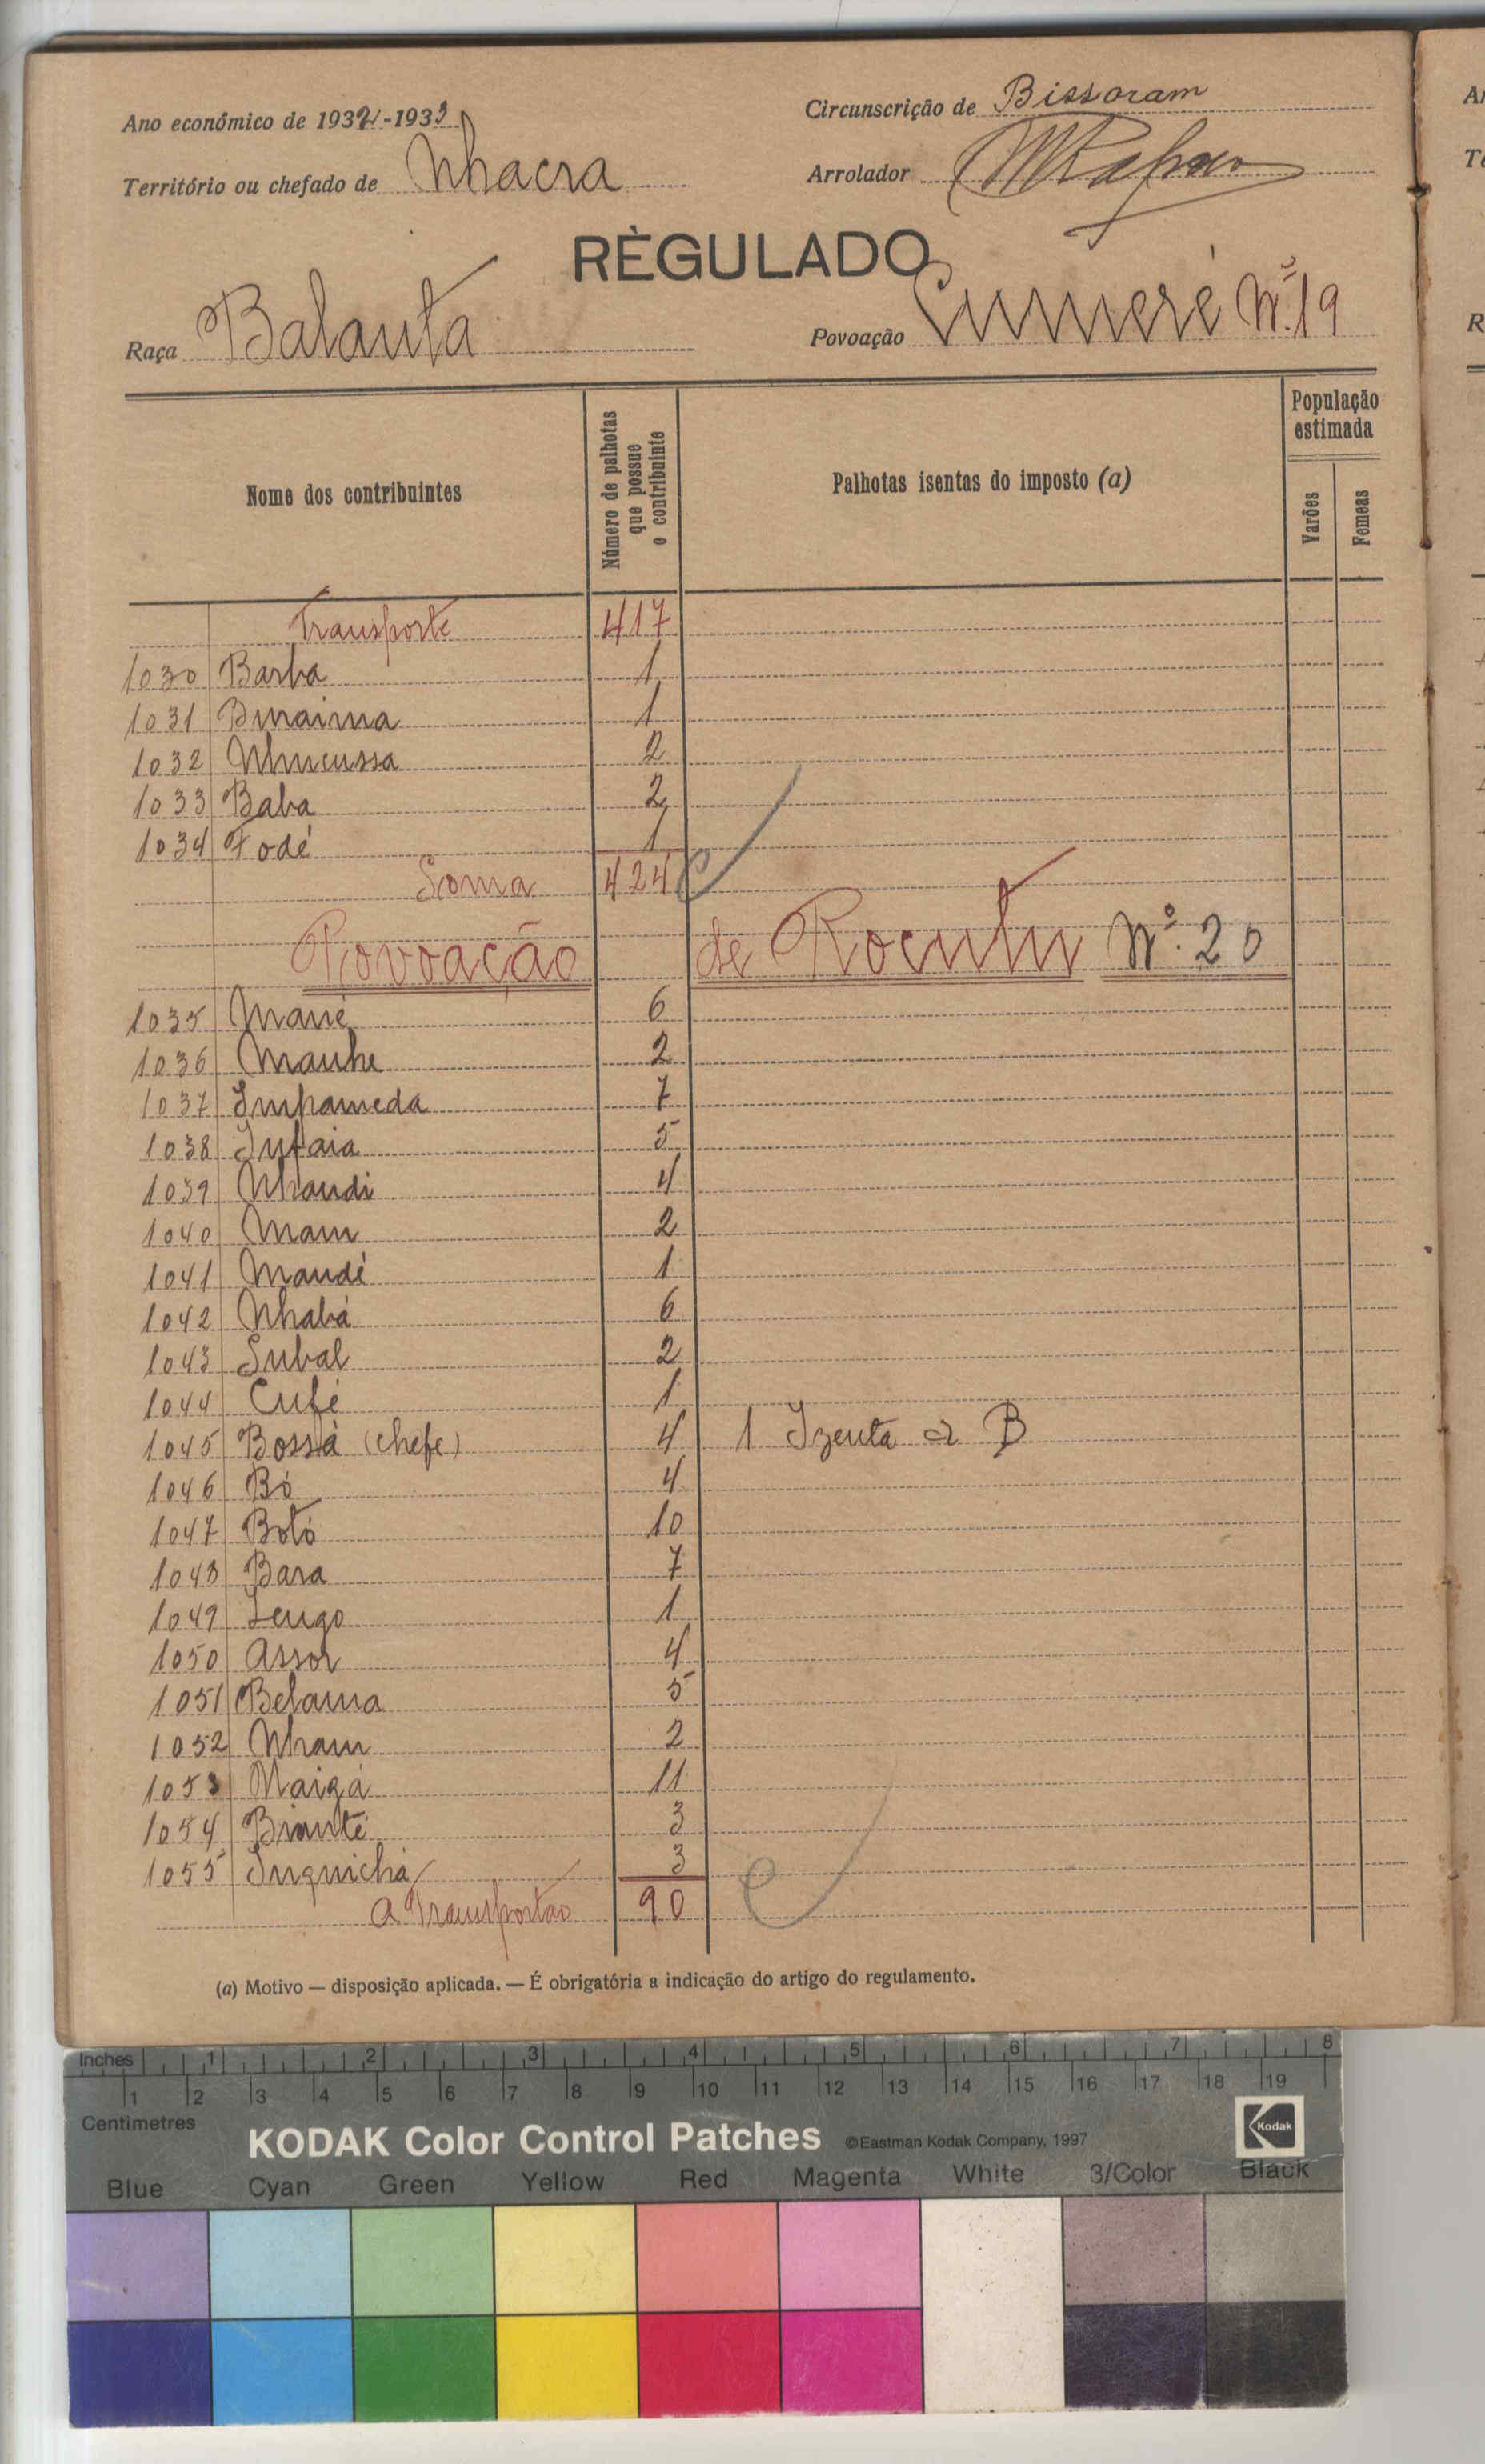 Ano económico de 1932-1933
Circunscrição de Bissoram
Território ou chefado de Nhacra
Arrolador
RÈGULADO
Raça Balanta
Povoação Cumeré Nº. 19
Nome dos contribuintes
Número de palhotas que possue o contribuinte
Palhotas isentas do imposto (a)
População estimada
Varões
Femeas
Transporte 417
1030 Barba 1
1031 Bmaima 1
1032 Nhucussa 2
1033 Baba 2
1034 Fodé 1
Soma 424
Povoação de Rocutu Nº. 20
1035 Mané 6
1036 Manhe 2
1037 Impameda 7
1038 Infaia 5
1039 Nhandi 4
1040 Mam 2
1041 Mandé 1
1042 Nhabá 6
1043 Subal 2
1044 Cufé 1
1045 Bossà (chefe) 4 1 Izenta a B
1046 Bó 4
1047 Botó 10
1048 Bara 7
1049 Lengo 1
1050 Assor 4
1051 Belama 5
1052 Nham 2
1053 Naigá 11
1054 Bianté 3
1055 Inquichá 3
A Transportar 90
(a) Motivo — disposição aplicada. — É obrigatória a indicação do artigo do regulamento.
Inches 1 2 3 4 5 6 7 8
1 2 3 4 5 6 7 8 9 10 11 12 13 14 15 16 17 18 19
Centimetres
KODAK Color Control Patches ©Eastman Kodak Company, 1997 Kodak
Blue Cyan Green Yellow Red Magenta White 3/Color Black